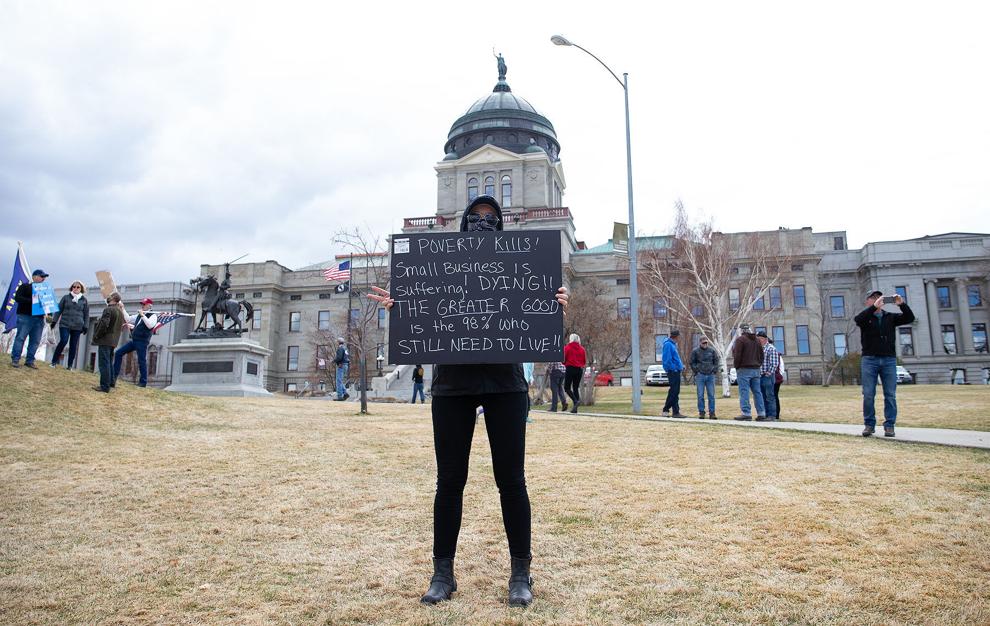 POVERTY KILLS!
SMALL BUSINESS IS
SUFFERING! DYING!!
THE GREATER GOOD
IS THE 98% WHO
STILL NEED TO LIVE!!